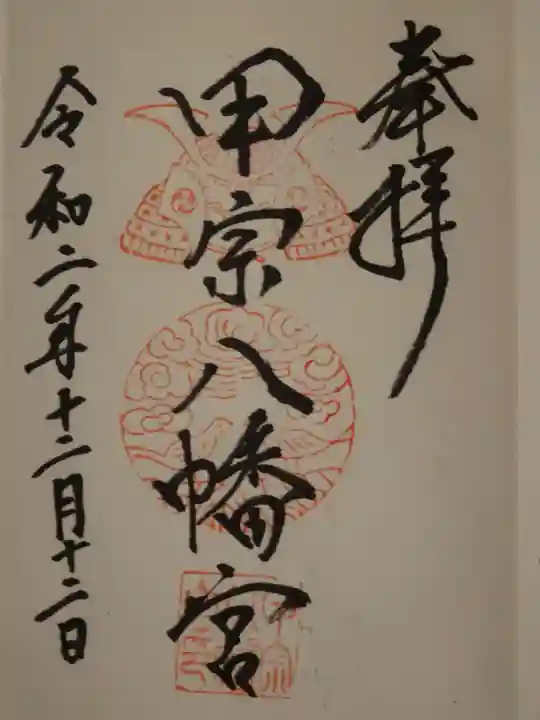 奉拝
甲宗八幡宮
令和二年十二月十二日